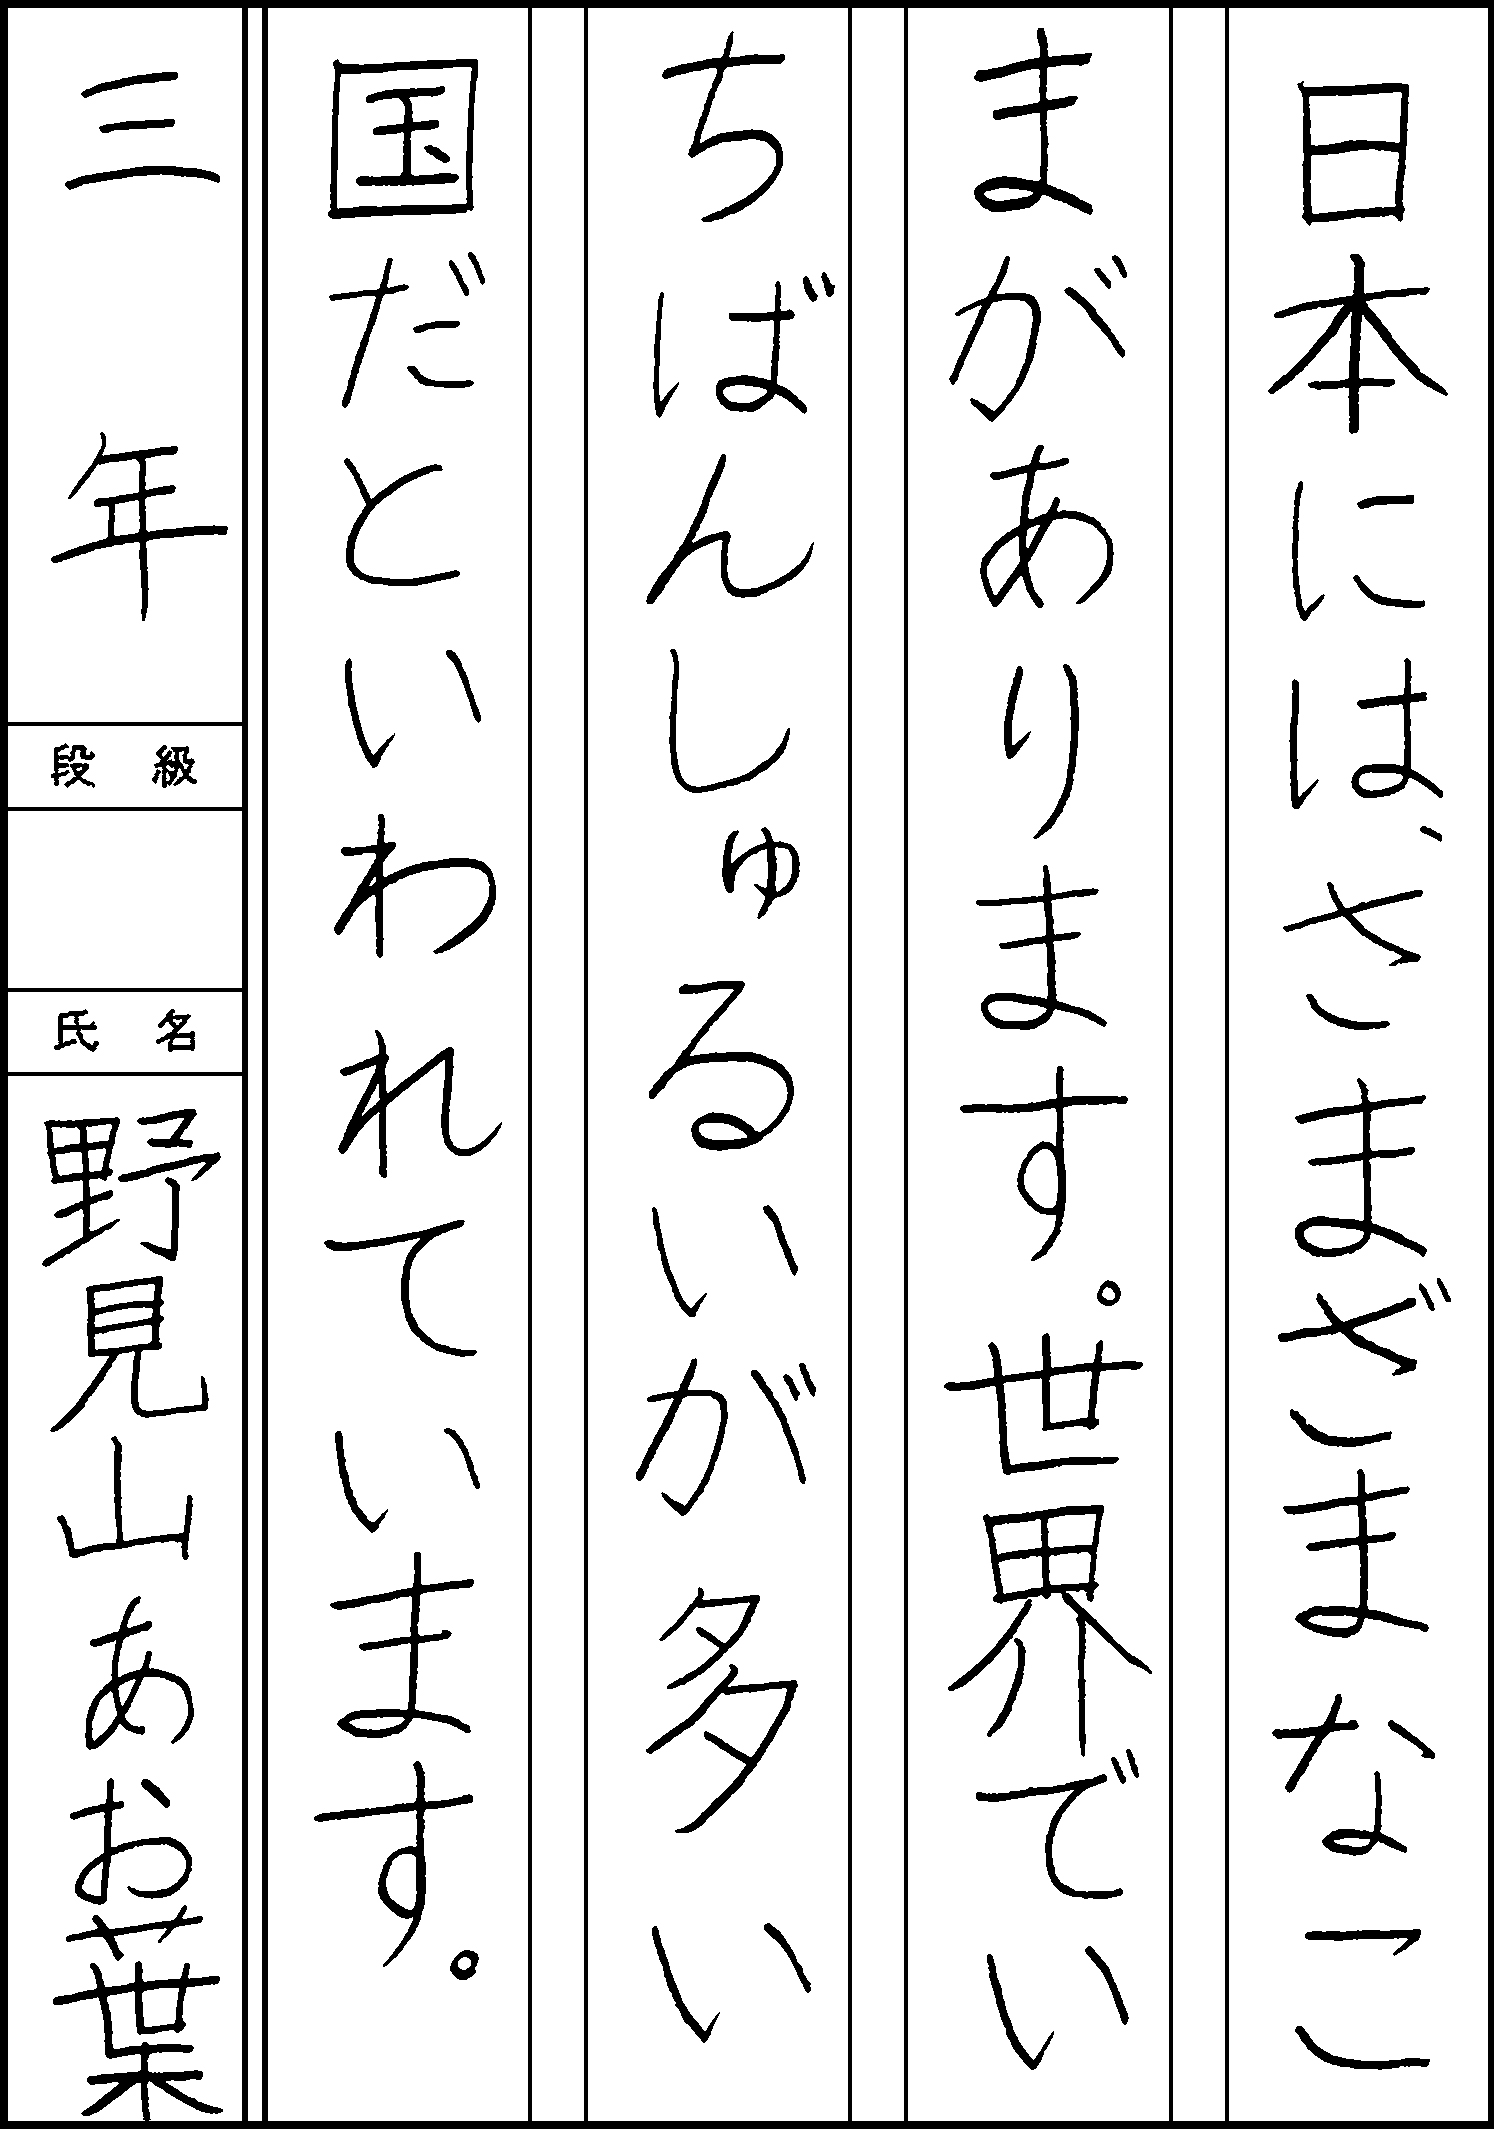 日本には、さまざまなこ
まがあります。世界でい
ちばんしゅるいが多い
国だといわれています。
三年
段級
氏名
野見山あお葉